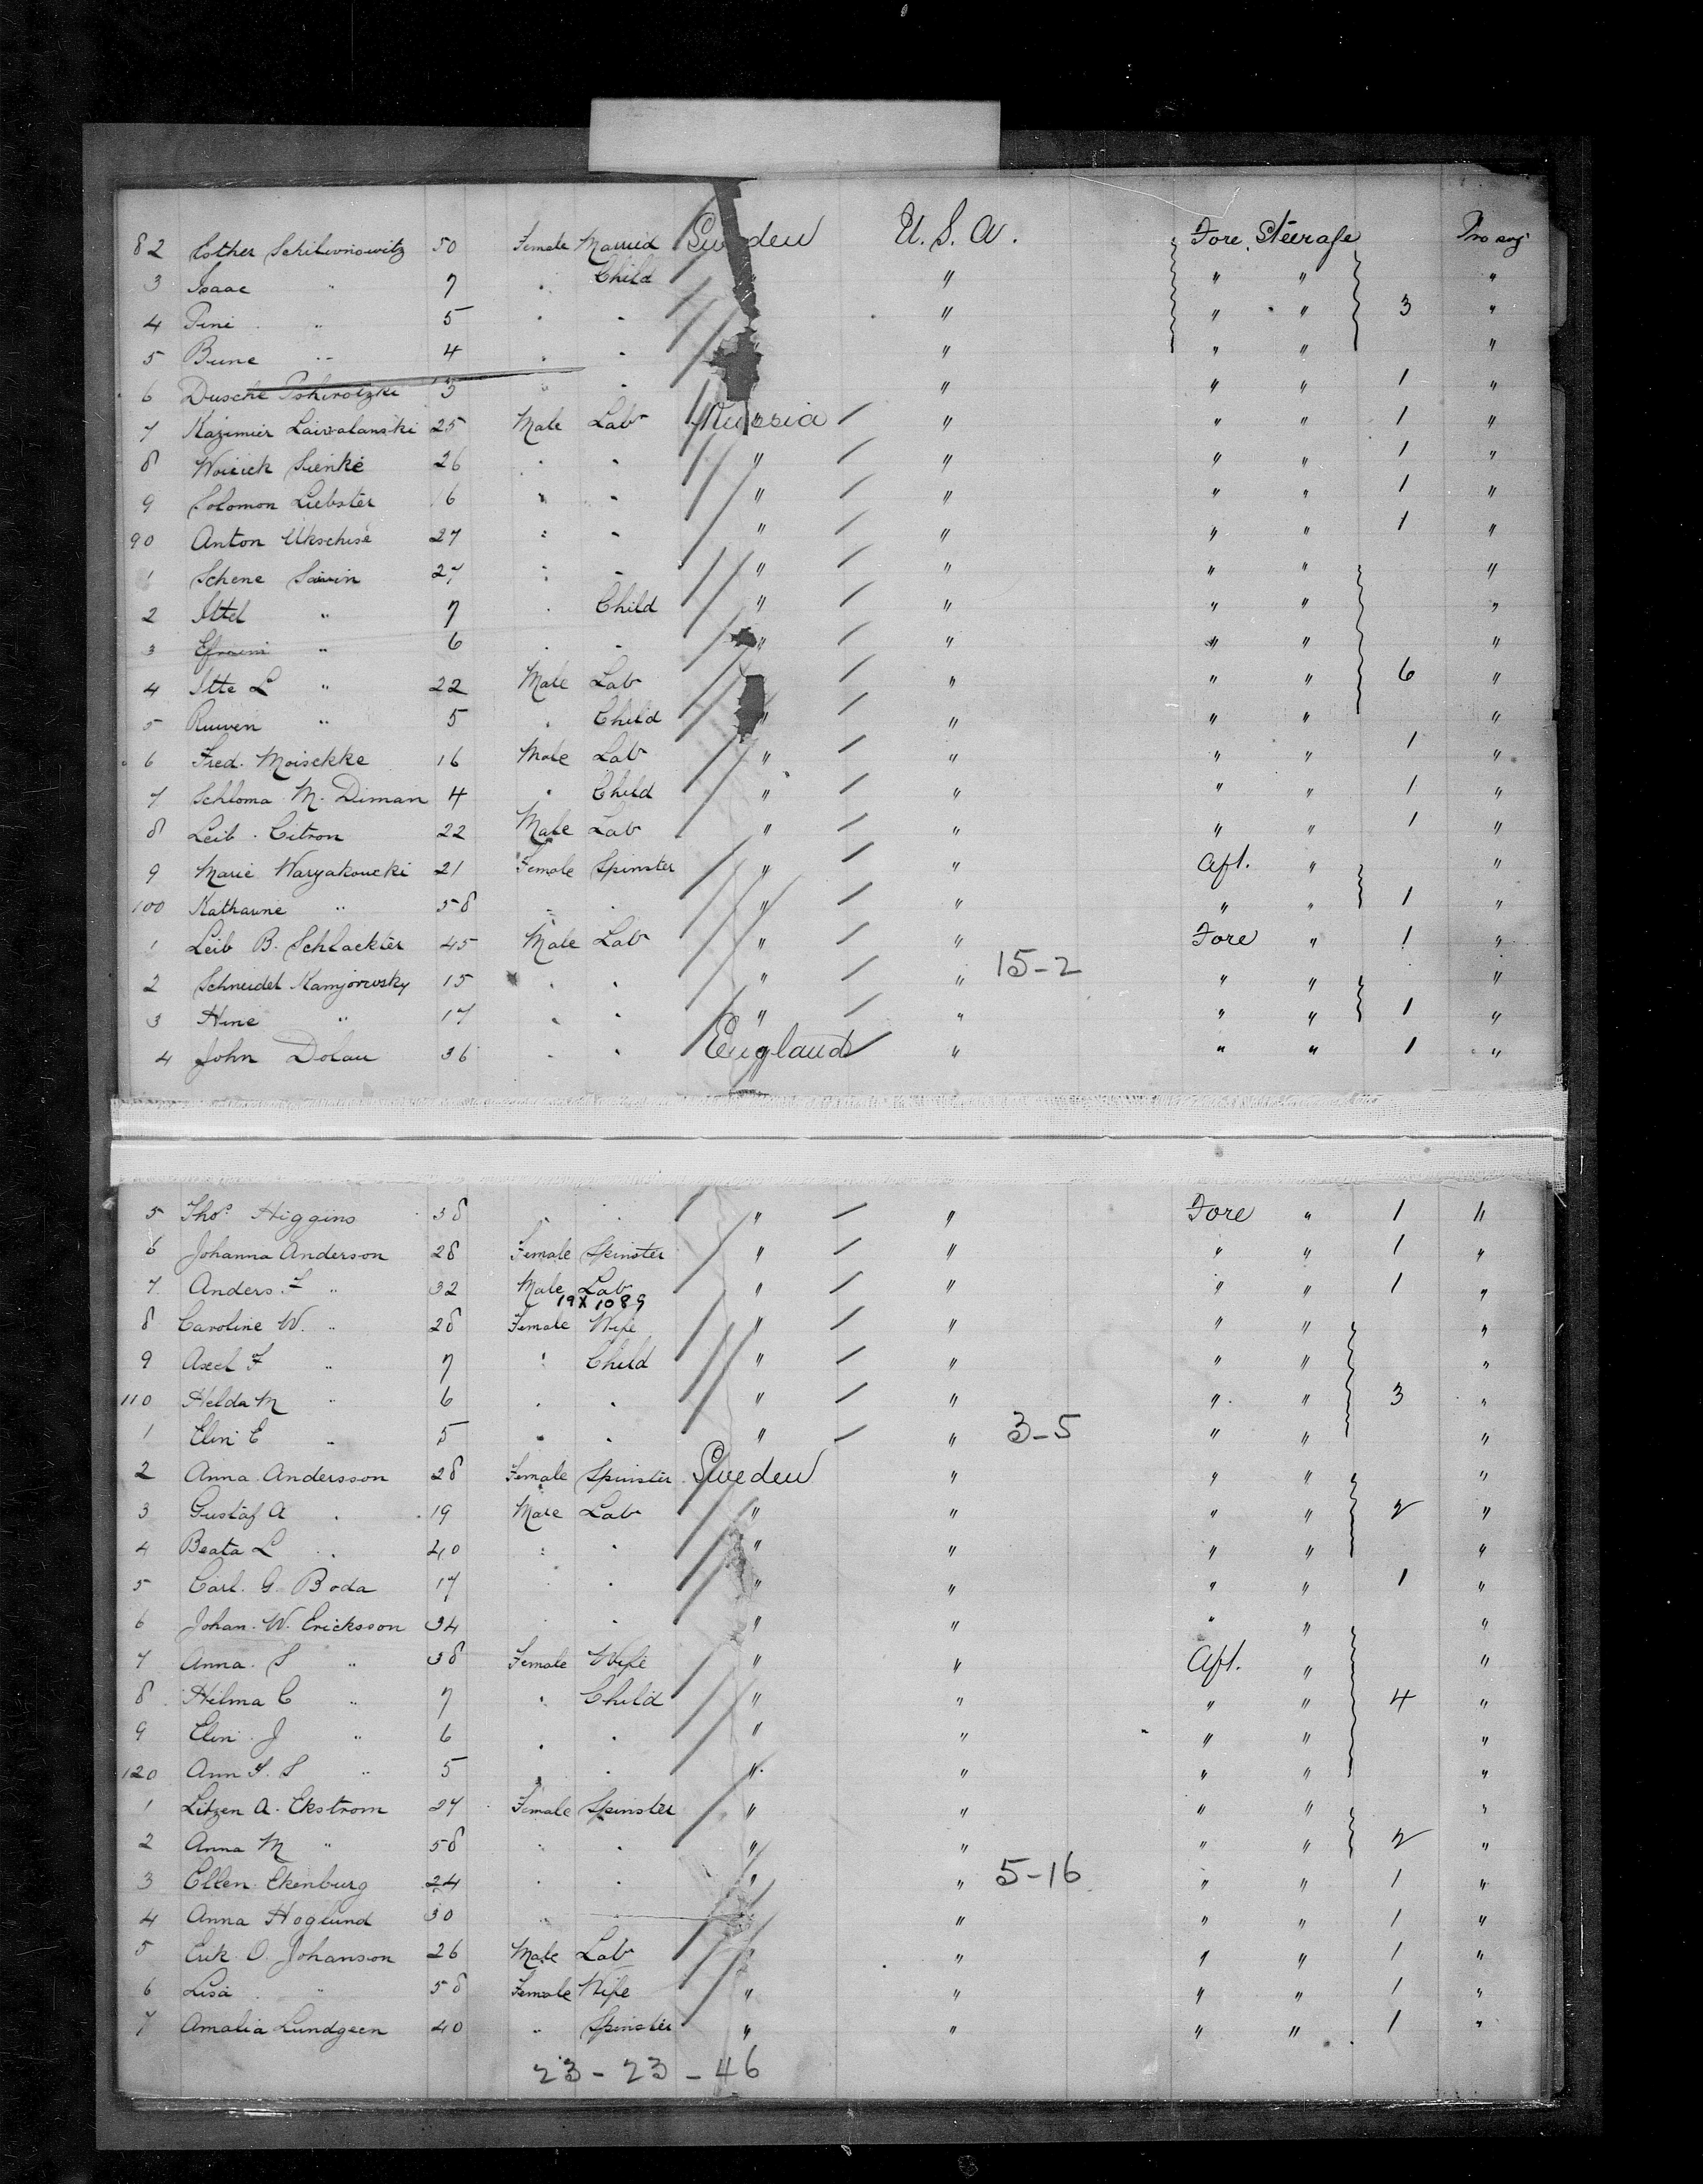 82 Esther Schilvonowitz 50 Female Married Sweden U. S. A. Fore Steerage Pro sog
3 Isaac " 7 " Child " " " " "
4 Pine " 5 " " " " " 3 "
5 Bune " 4 " " " " " "
6 Dusche 3 " " " " " 1 "
7 Kazimier 25 Male Lab Russia / " " " 1 "
8 Woicick Sienke 26 " " " / " " " 1 "
9 Solomon Liebster 16 " " " / " " " 1 "
90 Anton Ukschise 27 " " " / " " " 1 "
1 Schene 27 " " " / " " " "
2 Ittel " 7 " Child " / " " " "
3 Efraim " 6 " " " / " " " "
4 Itte L " 22 Male Lab " / " " " 6 "
5 Ruwen " 5 " Child " / " " " "
6 Fred. Moisekke 16 Male Lab " / " " " 1 "
7 Schloma M. Diman 4 " Child " / " " " 1 "
8 Leib. Citron 22 Male Lab " / " " " 1 "
9 Marie Waryakoucki 21 Female Spinster " / " Aft. " "
100 Katharine " 58 " " " / " " " 1 "
1 Leib B. Schlackter 45 Male Lab " / " Fore " 1 "
2 Schneidel Kamjorowsky 15 " " " / " 15-2 " " "
3 Hine " 17 " " " / " " " 1 "
4 John Dolan 36 " " England / " " " 1 "
5 Thos. Higgins 38 " " " / " Fore " 1 "
6 Johanna Anderson 28 Female Spinster " / " " " 1 "
7 Anders. F " 32 Male Lab " / " " " 1 "
19X1089
8 Caroline W. " 28 Female Wife " / " " " "
9 Axel F " 7 " Child " / " " " "
110 Helda M " 6 " " " / " " " 3 "
1 Elin E " 5 " " " / " 3-5 " " "
2 Anna Andersson 28 Female Spinster Sweden " " " "
3 Gustaf A " 19 Male Lab " " " " 2 "
4 Beata L " 40 " " " " " " "
5 Carl. G. Boda 17 " " " " " " 1 "
6 Johan. W. Ericksson 34 " " " " " " "
7 Anna. S " 38 Female Wife " " Aft. " "
8 Hilma C " 7 " Child " " " " 4 "
9 Elin J " 6 " " " " " " "
120 Ann S " 5 " " " " " " "
1 Litzen A. Ekstrom 27 Female Spinster " " " " "
2 Anna M " 58 " " " " " " 2 "
3 Ellen Ekenburg 24 " " " " 5-16 " " 1 "
4 Anna Hoglund 30 " " " " " " 1 "
5 Erik O. Johanson 26 Male Lab " " " " 1 "
6 Lisa " 58 Female Wife " " " " 1 "
7 Amalia Lundgeen 40 " Spinster " " " " 1 "
23 - 23 - 46